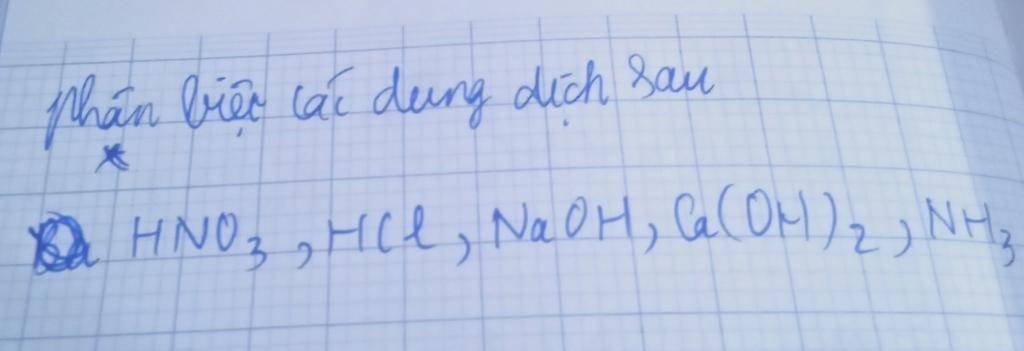 Phân biệt các dung dịch sau
HNO3, HCl, NaOH, Ca(OH)2, NH3